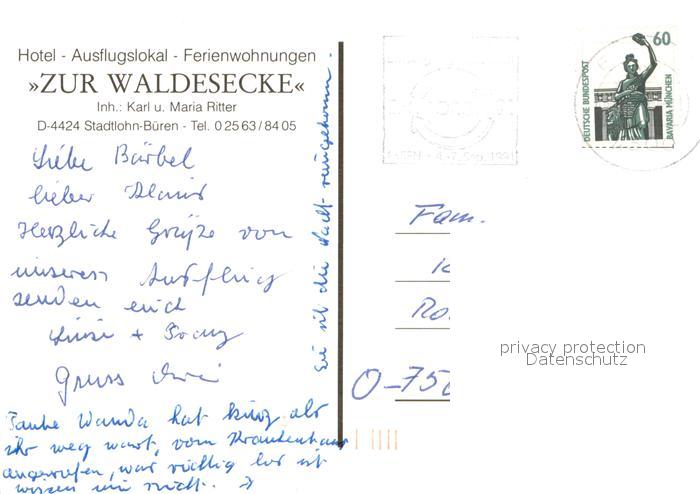 Hotel - Ausflugslokal - Ferienwohnungen
»ZUR WALDESECKE«
Inh.: Karl u. Maria Ritter
D-4424 Stadtlohn-Büren - Tel. 0 25 63 / 84 05
Liebe Bärbel
lieber Klaus
Herzliche Grüße von
unseren Ausflug
senden euch
Luise + Franz
Gruss
Tante Wanda hat kurz als
ihr weg wart, vom Krankenhaus
angerufen, was richtig los ist
wissen wir nicht. →
Sie ist die Nacht reingekommen.
60
DEUTSCHE BUNDESPOST
BAVARIA MÜNCHEN
4.-7. Sep. 1991
Fam.
O-750
privacy protection
Datenschutz